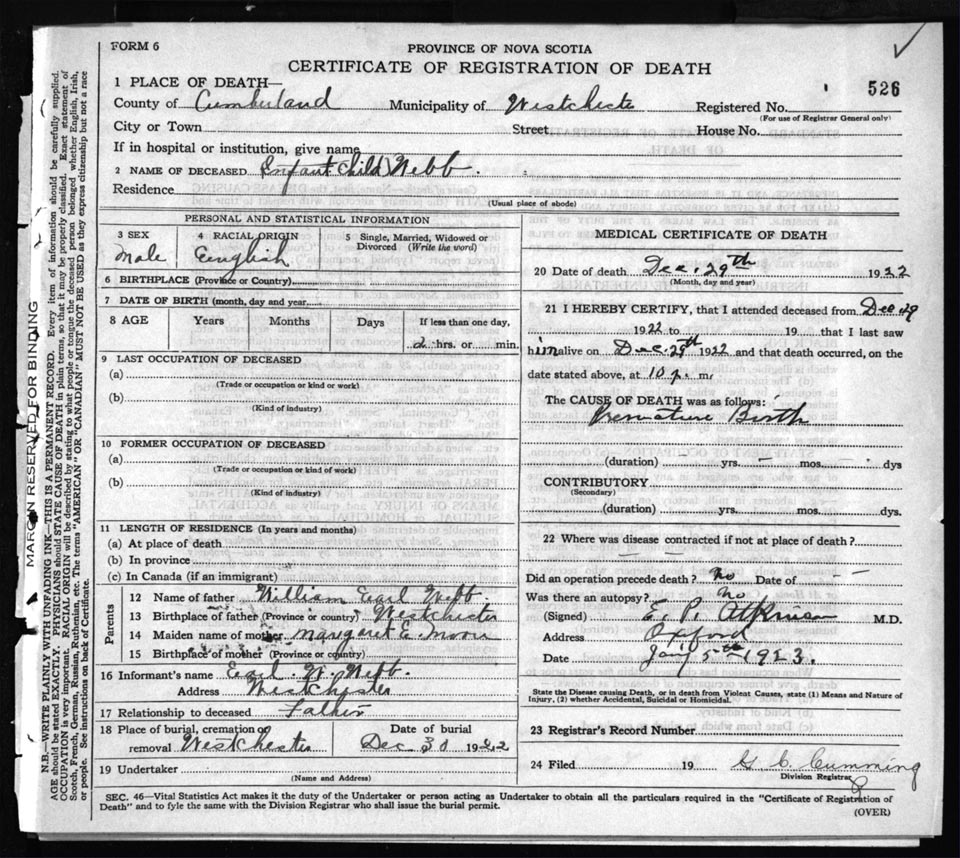 FORM 6
PROVINCE OF NOVA SCOTIA
CERTIFICATE OF REGISTRATION OF DEATH
526
1 PLACE OF DEATH—
County of Cumberland Municipality of Westcheste Registered No.
(For use of Registrar General only)
City or Town Street House No.
If in hospital or institution, give name
2 NAME OF DECEASED Infant Child Webb.
Residence
(Usual place of abode)
PERSONAL AND STATISTICAL INFORMATION
3 SEX 4 RACIAL ORIGIN 5 Single, Married, Widowed or Divorced (Write the word)
Male English
6 BIRTHPLACE (Province or Country)
7 DATE OF BIRTH (month, day and year)
8 AGE Years Months Days If less than one day,
2 hrs. or min.
9 LAST OCCUPATION OF DECEASED
(a)
(Trade or occupation or kind or work)
(b)
(Kind of industry)
10 FORMER OCCUPATION OF DECEASED
(a)
(Trade or occupation or kind of work)
(b)
(Kind of industry)
11 LENGTH OF RESIDENCE (In years and months)
(a) At place of death
(b) In province
(c) In Canada (if an immigrant)
Parents
12 Name of father William Earl Webb.
13 Birthplace of father (Province or country) Westchester
14 Maiden name of mother Margaret E.
15 Birthplace of mother (Province or country)
16 Informant's name Earl. W. Webb.
Address Westchester
17 Relationship to deceased Father
18 Place of burial, cremation or removal Westchester
Date of burial Dec 30 1922
19 Undertaker
(Name and Address)
MEDICAL CERTIFICATE OF DEATH
20 Date of death Dec. 29th 1922
(Month, day and year)
21 I HEREBY CERTIFY, that I attended deceased from Dec. 29
1922 to 19 that I last saw
him alive on Dec. 29th 1922 and that death occurred, on the
date stated above, at 10 p. m.
The CAUSE OF DEATH was as follows:
Premature Birth
(duration) yrs. — mos. — dys
CONTRIBUTORY
(Secondary)
(duration) yrs. mos. dys.
22 Where was disease contracted if not at place of death?
— —
Did an operation precede death? No Date of — —
Was there an autopsy? No
(Signed) E. P. Atkinson M.D.
Address Oxford
Date Jany 5th 1923.
State the Disease causing Death, or in death from Violent Causes, state (1) Means and Nature of
Injury, (2) whether Accidental, Suicidal or Homicidal.
23 Registrar's Record Number
24 Filed 19 G. C. Cumming
Division Registrar
SEC. 46—Vital Statistics Act makes it the duty of the Undertaker or person acting as Undertaker to obtain all the particulars required in the "Certificate of Registration of
Death" and to fyle the same with the Division Registrar who shall issue the burial permit.
(OVER)
MARGIN RESERVED FOR BINDING
N.B.—WRITE PLAINLY WITH UNFADING INK—THIS IS A PERMANENT RECORD. Every item of information should be carefully supplied.
AGE should be stated EXACTLY. PHYSICIANS should STATE CAUSE OF DEATH in plain terms, so that it may be properly classified. Exact statement of
OCCUPATION is very important. RACIAL ORIGIN will be described by stating to what people or tongue the deceased person belonged whether English, Irish,
Scotch, French, German, Russian, Ruthenian, etc. The terms "AMERICAN" OR "CANADIAN" MUST NOT BE USED as they express citizenship but not a race
or people. See instructions on back of Certificate.